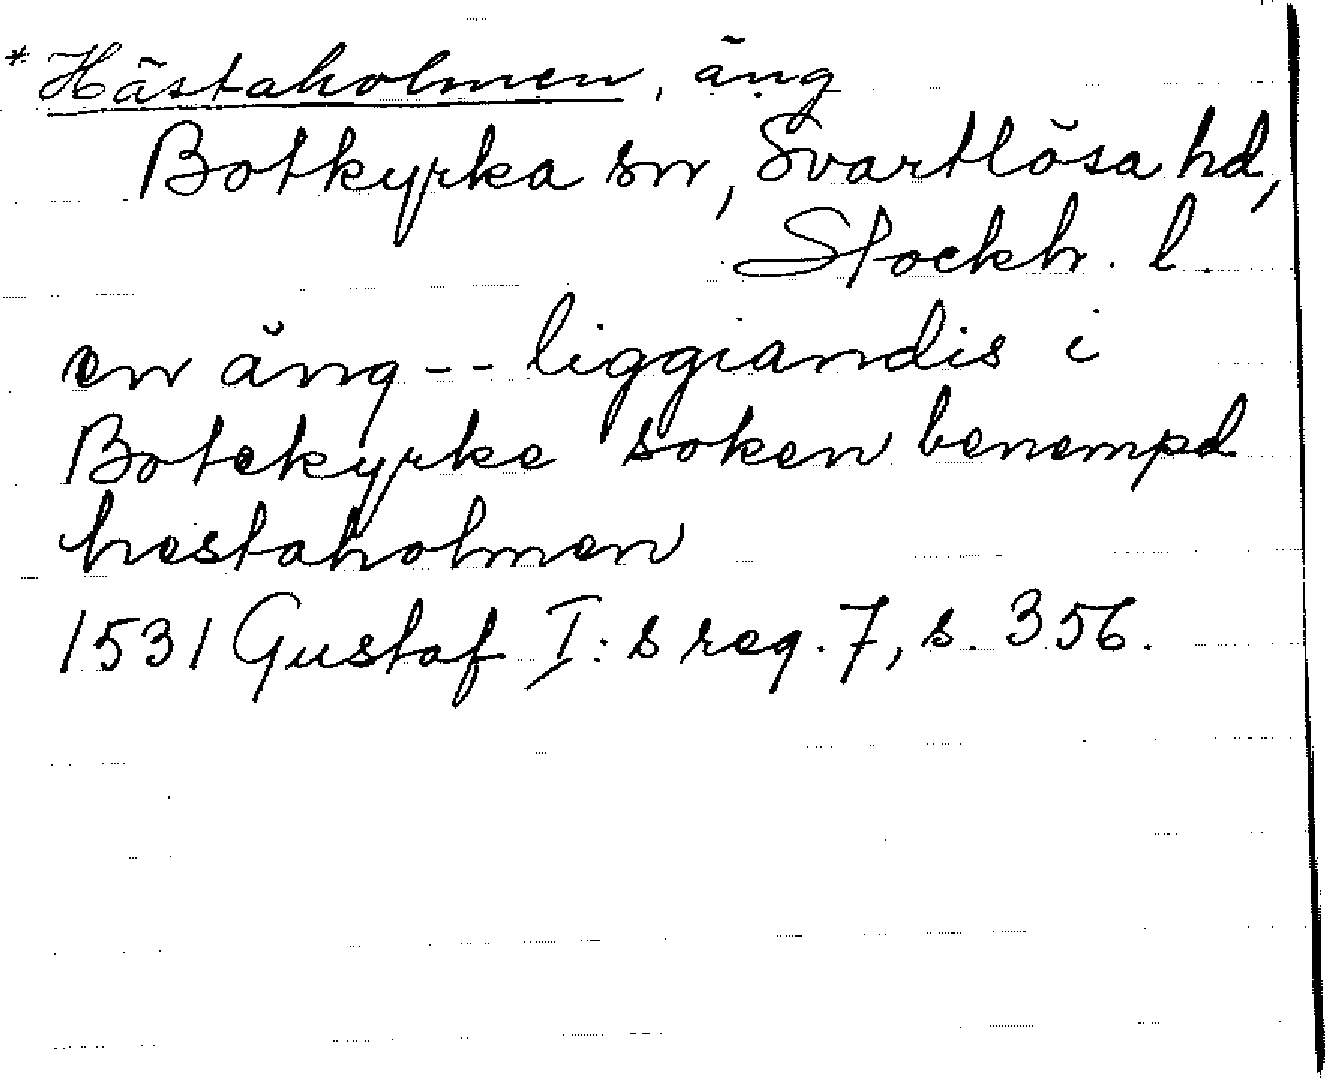 * Hästaholmen, äng
Botkyrka sn, Svartlösa hd,
Stockh. l.
en äng -- liggiandis i
Botekyrke soken benempd
hestaholmen
1531 Gustaf I:s reg. 7, s. 356.